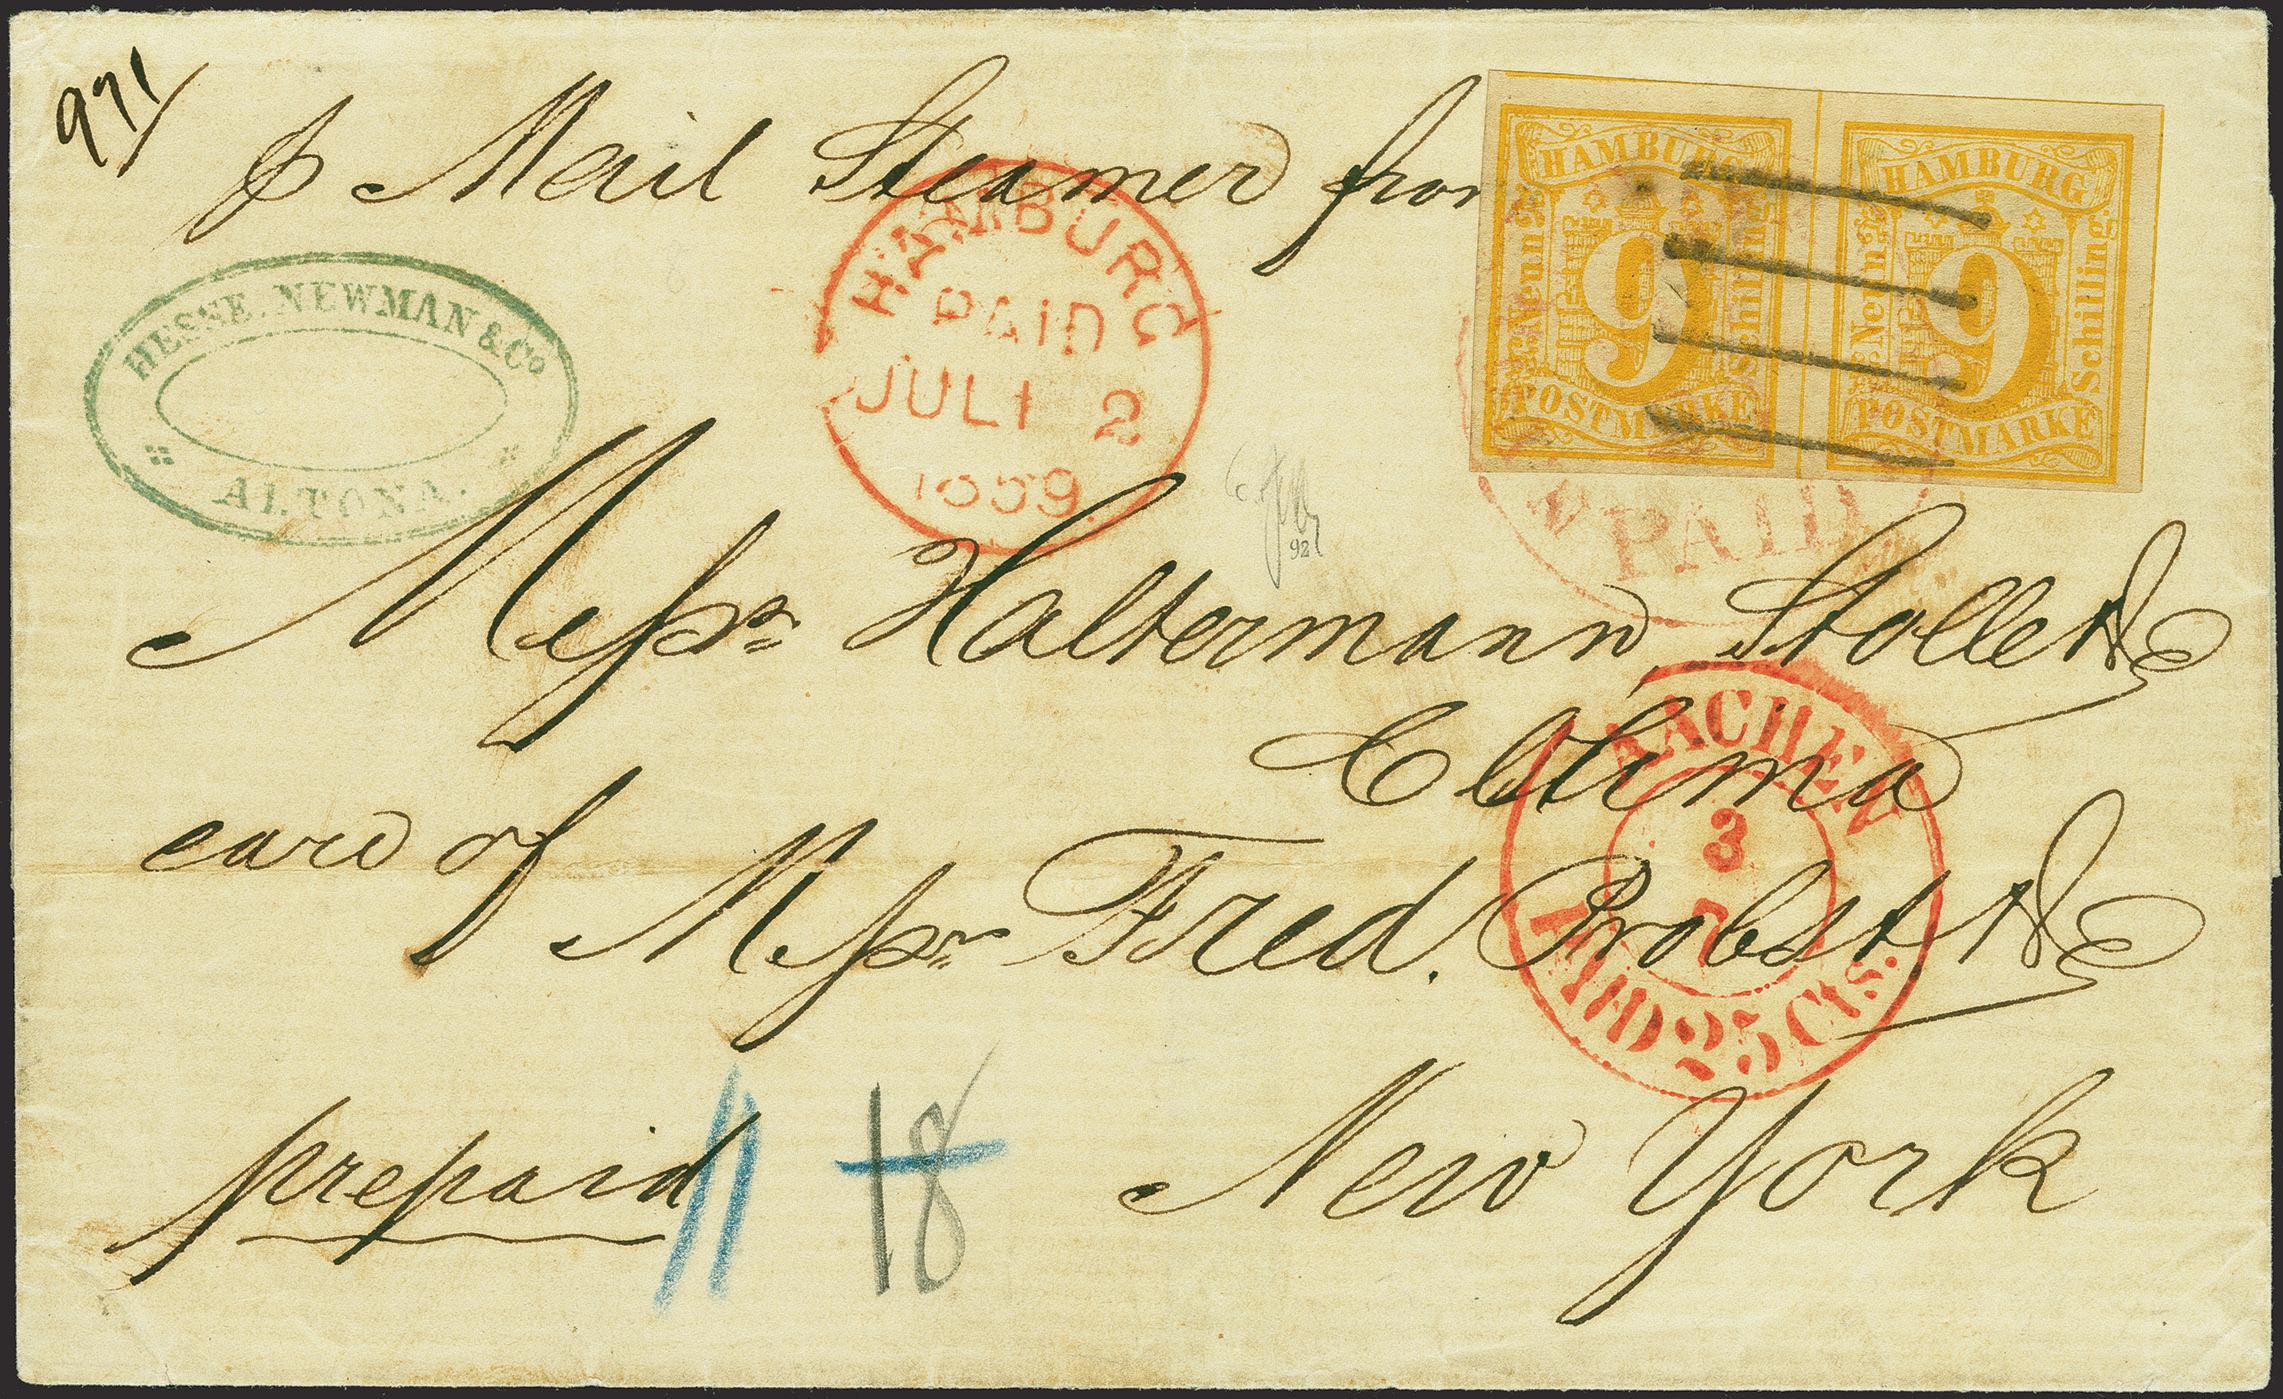 971
p Mail Steamer from
HAMBURG
Neun
9
Schilling
POSTMARKE
HAMBURG
Neun
9
Schilling.
POSTMARKE
HESSE. NEWMAN & Co
ALTONA.
HAMBURG
PAID
JULI 2
1859.
PAID
92
Messrs Haltermann, Stolle & Co
Colima
care of Messrs Fred. Probst & Co
AACHEN
3
7
PAID 25 Cts.
prepaid
11
18
New York